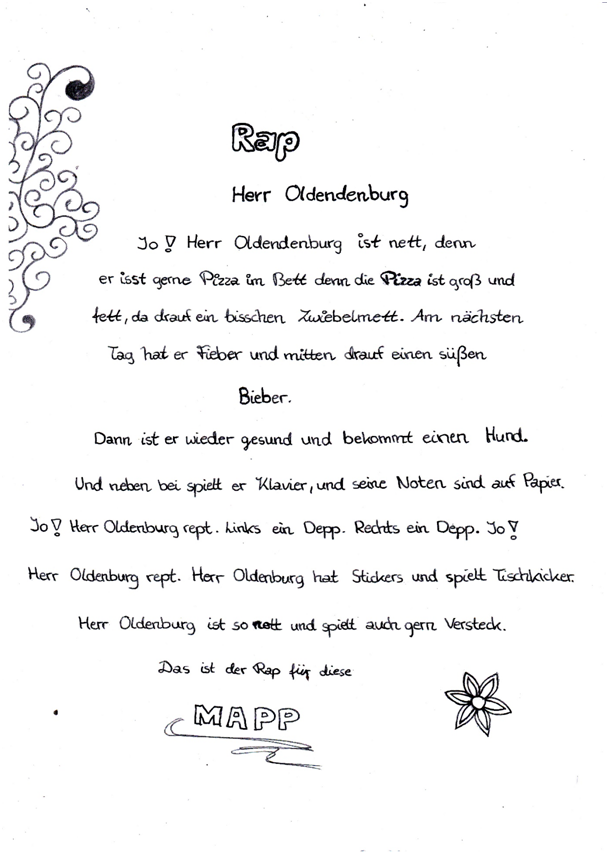 Rap
Herr Oldendenburg
Jo! Herr Oldendenburg ist nett, denn
er isst gerne Pizza im Bett denn die Pizza ist groß und
fett, da drauf ein bisschen Zwiebelmett. Am nächsten
Tag hat er Fieber und mitten drauf einen süßen
Bieber.
Dann ist er wieder gesund und bekommt einen Hund.
Und neben bei spielt er Klavier, und seine Noten sind auf Papier.
Jo! Herr Oldenburg rept. Links ein Depp. Rechts ein Depp. Jo!
Herr Oldenburg rept. Herr Oldenburg hat Stickers und spielt Tischkicker.
Herr Oldenburg ist so nett und spielt auch gern Versteck.
Das ist der Rap für diese
MAPP